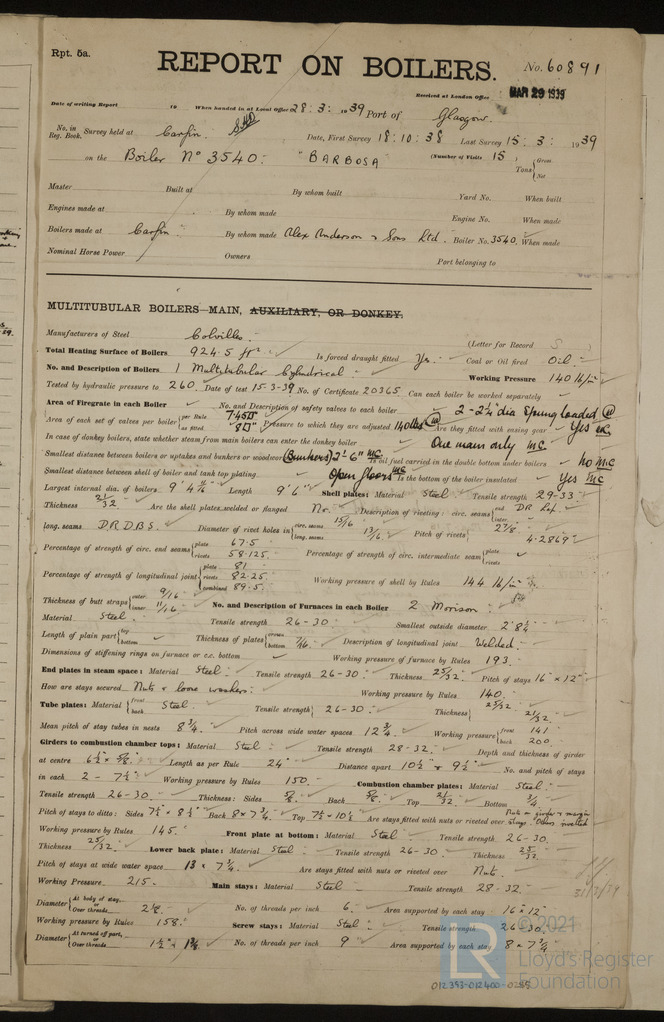 Rpt. 5a.
REPORT ON BOILERS.
No. 60891
Received at London Office MAR 29 1939
Date of writing Report 19 When handed in at Local Office 28:3: 1939 Port of Glasgow.
No. in Reg. Book. Survey held at Carfin. Date, First Survey 18:10:38 Last Survey 15:3: 1939
on the Boiler No 3540: "BARBOSA" (Number of Visits 15) Tons { Gross Net
Master Built at By whom built Yard No. When built
Engines made at By whom made Engine No. When made
Boilers made at Carfin. By whom made Alex Anderson & Sons Ltd. Boiler No. 3540. When made
Nominal Horse Power Owners Port belonging to
MULTITUBULAR BOILERS MAIN, AUXILIARY, OR DONKEY.
Manufacturers of Steel Colvilles. (Letter for Record S )
Total Heating Surface of Boilers 924.5 ft² Is forced draught fitted Yes. Coal or Oil fired Oil
No. and Description of Boilers 1 Multitubular Cylindrical Working Pressure 140 lb/in²
Tested by hydraulic pressure to 260 Date of test 15-3-39 No. of Certificate 20365 Can each boiler be worked separately
Area of Firegrate in each Boiler No. and Description of safety valves to each boiler 2 - 2½" dia Spring loaded
Area of each set of valves per boiler { per Rule 7.45□" as fitted 8□" Pressure to which they are adjusted 140 lbs Are they fitted with easing gear Yes
In case of donkey boilers, state whether steam from main boilers can enter the donkey boiler One main only MC.
Smallest distance between boilers or uptakes and bunkers or woodwork (Bunkers) 2'-6" MC Is oil fuel carried in the double bottom under boilers No MC
Smallest distance between shell of boiler and tank top plating Open floors MC Is the bottom of the boiler insulated Yes MC
Largest internal dia. of boilers 9' 4 11/16" Length 9' 6" Shell plates: Material Steel Tensile strength 29-33
Thickness 21/32 Are the shell plates welded or flanged No. Description of riveting: circ. seams { end DR Lap. inter.
long. seams D.R.D.B.S. Diameter of rivet holes in { circ. seams 15/16 long. seams 13/16 Pitch of rivets { 2 7/8 4.2869"
Percentage of strength of circ. end seams { plate 67.5 rivets 58.125 Percentage of strength of circ. intermediate seam { plate rivets
Percentage of strength of longitudinal joint { plate 81 rivets 82.25 combined 89.5 Working pressure of shell by Rules 144 lb/in²
Thickness of butt straps { outer 9/16 inner 11/16 No. and Description of Furnaces in each Boiler 2 Morison
Material Steel Tensile strength 26-30 Smallest outside diameter 2' 8¼
Length of plain part { top bottom Thickness of plates { crown bottom 7/16 Description of longitudinal joint Welded.
Dimensions of stiffening rings on furnace or c.c. bottom Working pressure of furnace by Rules 193
End plates in steam space: Material Steel Tensile strength 26-30 Thickness 25/32 Pitch of stays 16" × 12"
How are stays secured Nuts & loose washers Working pressure by Rules 140.
Tube plates: Material { front back Steel Tensile strength { 26-30 Thickness { 25/32 21/32
Mean pitch of stay tubes in nests 8¾ Pitch across wide water spaces 12¾ Working pressure { front 141 back 200
Girders to combustion chamber tops: Material Steel Tensile strength 28-32 Depth and thickness of girder
at centre 6½ × 5/8 Length as per Rule 24" Distance apart 10½ × 9½ No. and pitch of stays
in each 2 - 7½" Working pressure by Rules 150. Combustion chamber plates: Material Steel
Tensile strength 26-30 Thickness: Sides 5/8 Back 5/8 Top 21/32 Bottom 3/4
Pitch of stays to ditto: Sides 7½ × 8½ Back 8 × 7¾ Top 7½ × 10½ Are stays fitted with nuts or riveted over Nuts in girder & margin stays. Others riveted
Working pressure by Rules 145. Front plate at bottom: Material Steel Tensile strength 26-30
Thickness 25/32. Lower back plate: Material Steel Tensile strength 26-30 Thickness 25/32
Pitch of stays at wide water space 13 × 7¾ Are stays fitted with nuts or riveted over Nuts.
Working Pressure 215. Main stays: Material Steel Tensile strength 28-32. 31/3/39
Diameter { At body of stay, or Over threads 2 1/8. No. of threads per inch 6. Area supported by each stay 16 × 12"
Working pressure by Rules 158. Screw stays: Material Steel Tensile strength 26-30.
Diameter { At turned off part, or Over threads 1½" × 1¾ No. of threads per inch 9 Area supported by each stay 8 × 7¾
© 2021
LR Lloyd's Register
Foundation
012393-012400-0285